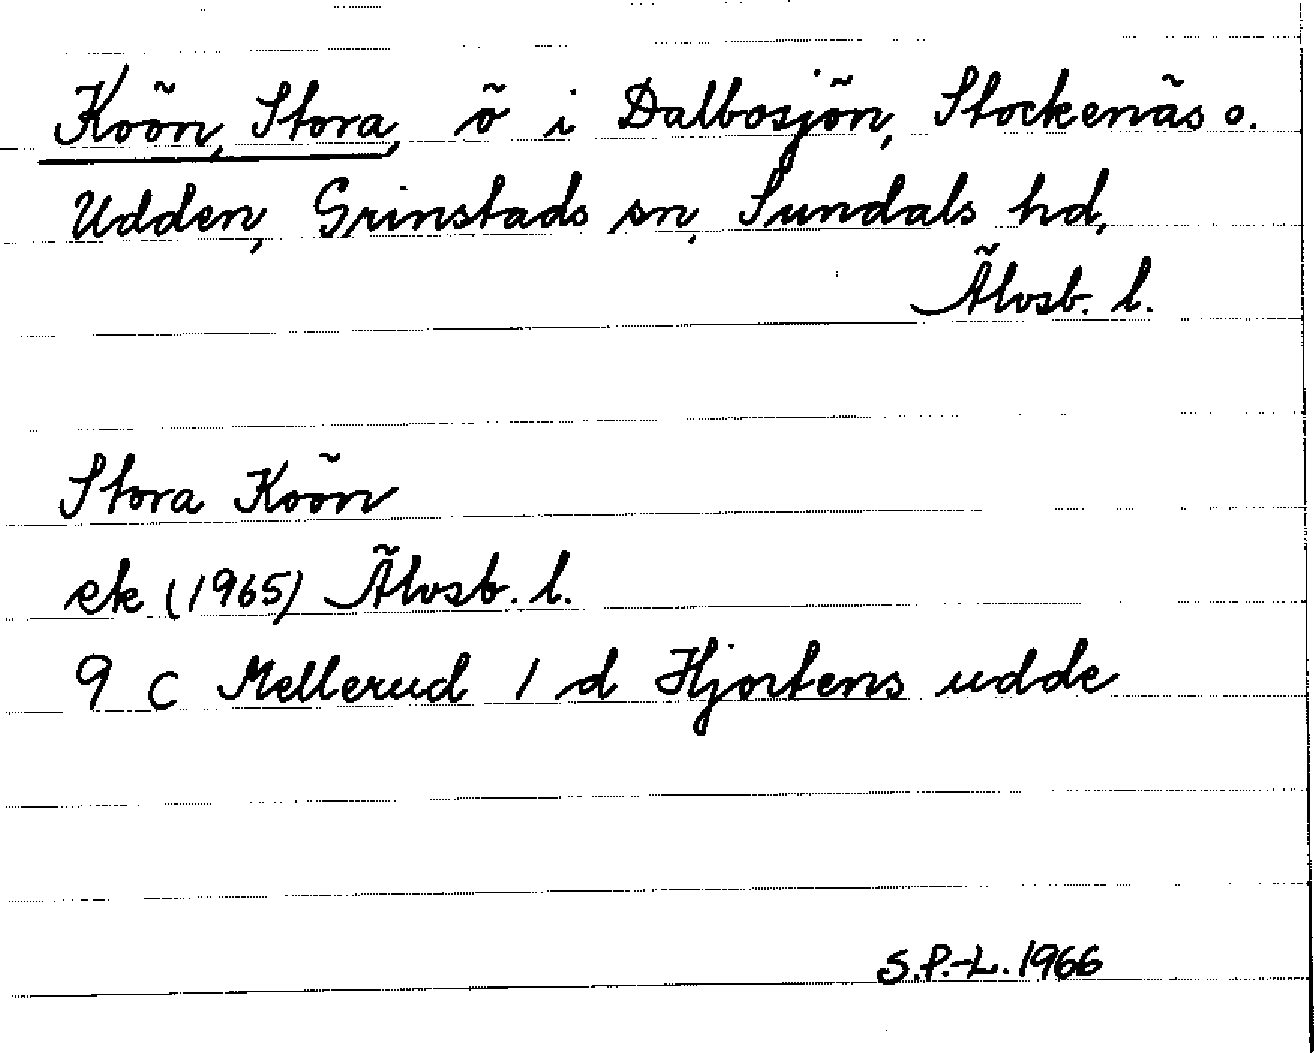 Koön, Stora, ö i Dalbosjön, Stockenäs o.
Udden, Grinstads sn, Sundals hd,
Älvsb. l.
Stora Koön
ek (1965) Älvsb. l.
9 C Mellerud 1 d Hjortens udde
S.P.-L. 1966